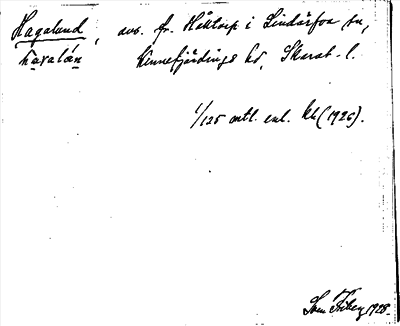 Hagalund, avs. fr. Håktorp i Lindärfva sn,
havalún Kinnefjärdings hd, Skarab. l.
1/125 mtl. enl. kb (1926).
Sven Friberg 1928.